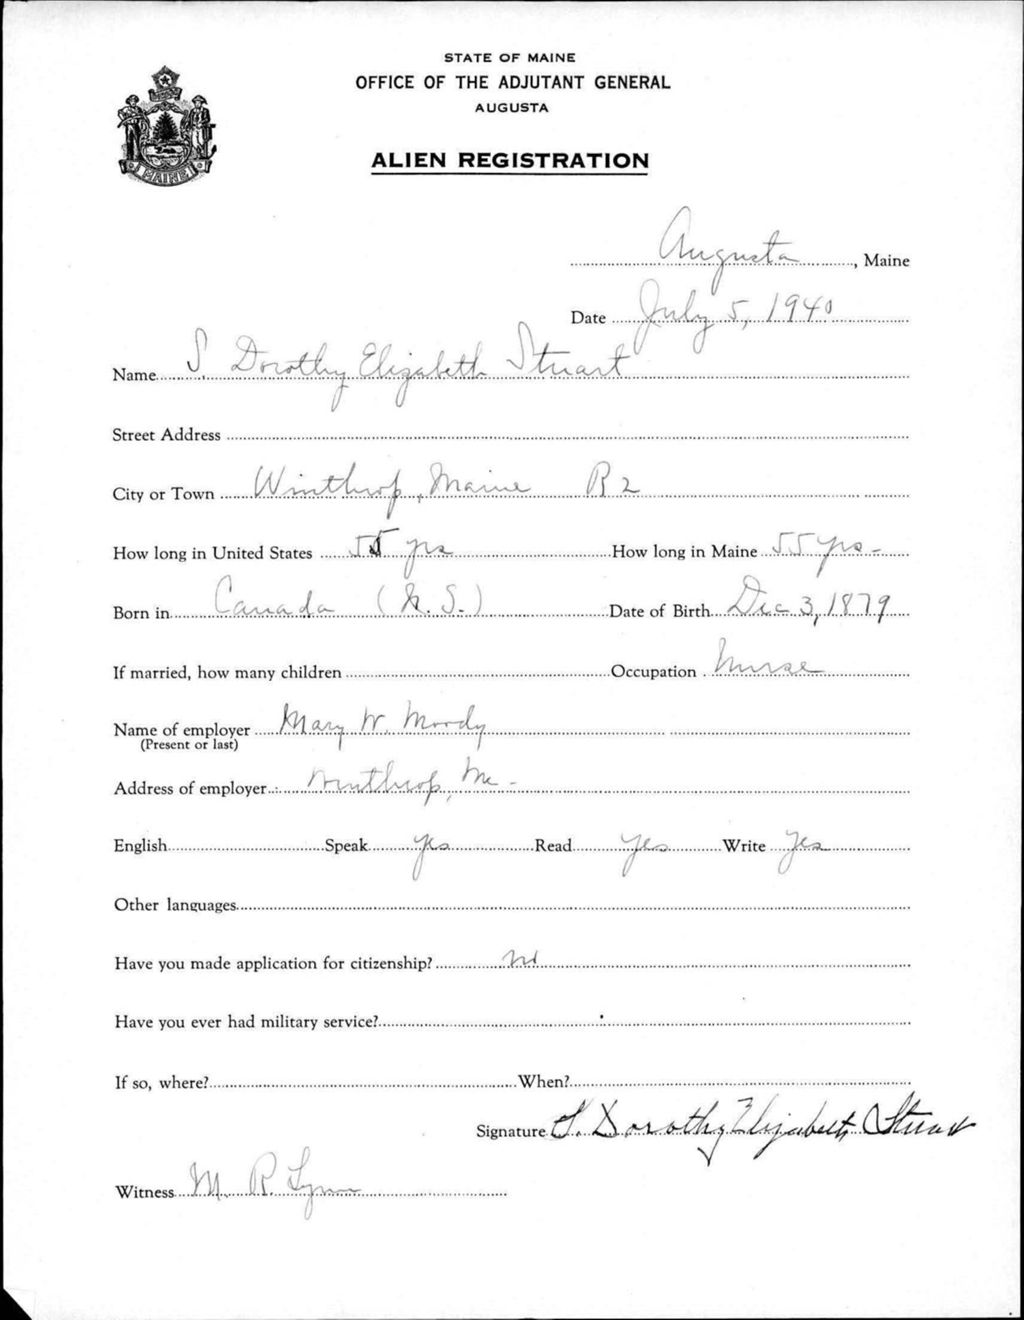 STATE OF MAINE
OFFICE OF THE ADJUTANT GENERAL
AUGUSTA
MAINE
ALIEN REGISTRATION
Augusta, Maine
Date July 5, 1940
Name S. Dorothy Elizabeth Stuart
Street Address
City or Town Winthrop, Maine R 2
How long in United States 55 yrs How long in Maine 55 yrs -
Born in Canada (N. S.) Date of Birth Dec 3, 1879
If married, how many children Occupation Nurse
Name of employer Mary W. Moody
(Present or last)
Address of employer Winthrop, Me -
English Speak yes Read yes Write yes
Other languages
Have you made application for citizenship? no
Have you ever had military service?
If so, where? When?
Signature S. Dorothy Elizabeth Stuart
Witness M. R. Lynn